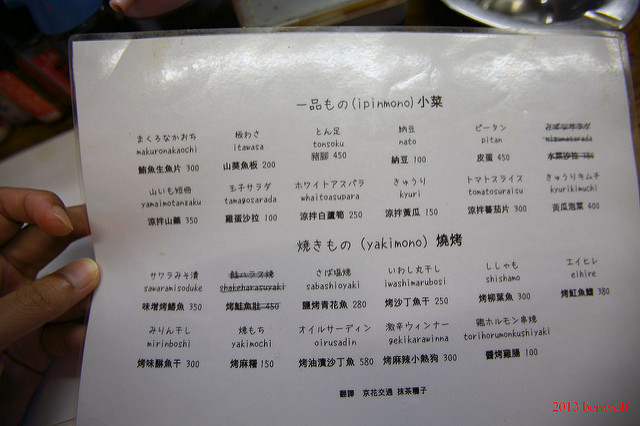 一品もの(ipinmono)小菜
まぐろなかおち 板わさ とん足 納豆 ピータン
makuronakaochi itawasa tonsoku nato pitan mizunasarada
鮪魚生魚片 300 山葵魚板 200 豬腳 450 納豆 100 皮蛋 450 水菜沙拉
山いも短冊 玉子サラダ ホワイトアスパラ きゅうり トマトスライス きゅうりキムチ
yamaimotanzaku tamagosarada whaitoasupara kyuri tomatosuraisu kyurikimuchi
涼拌山藥 350 雞蛋沙拉 100 涼拌白蘆筍 250 涼拌黃瓜 150 涼拌蕃茄片 300 黃瓜泡菜 400
焼きもの (yakimono) 燒烤
サワラみそ漬 鮭ハラス焼 さば塩焼 いわし丸干し ししゃも エイヒレ
sawaramisoduke shakeharasuyaki sabashioyaki iwashimarubosi shishamo eihire
味增烤鰆魚 350 烤鮭魚肚 450 鹽烤青花魚 280 烤沙丁魚干 250 烤柳葉魚 300 烤魟魚鰭 380
みりん干し 焼もち オイルサーディン 激辛ウィンナー 鶏ホルモン串焼
mirinboshi yakimochi oirusadin gekikarawinna torihorumonkushiyaki
烤味醂魚干 300 烤麻糬 150 烤油漬沙丁魚 580 烤麻辣小熱狗 300 醬烤雞腸 100
翻譯 京花交通 抹茶糰子